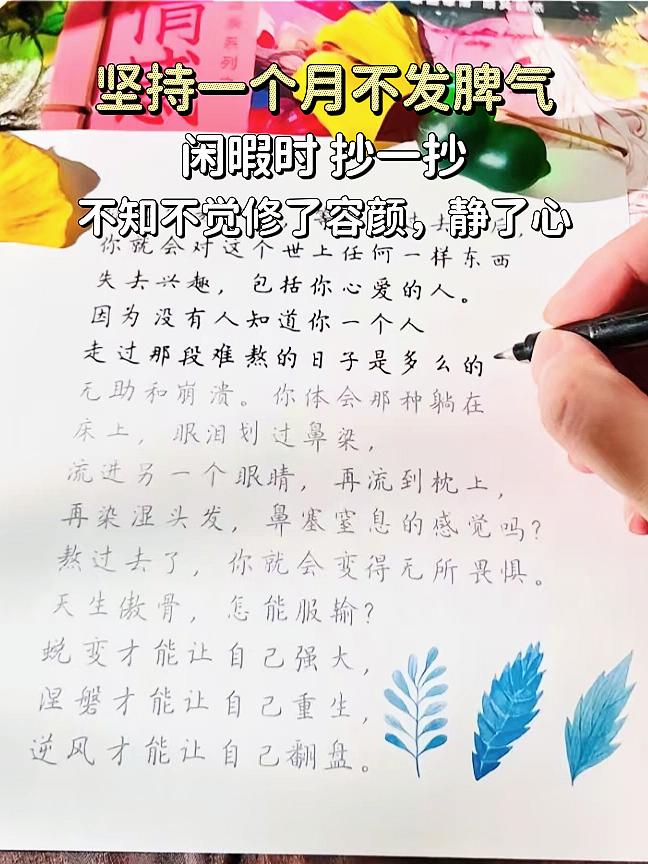 情
系列
坚持一个月不发脾气
闲暇时 抄一抄
不知不觉修了容颜，静了心
你就会对这个世上任何一样东西
失去兴趣，包括你心爱的人。
因为没有人知道你一个人
走过那段难熬的日子是多么的
无助和崩溃。你体会那种躺在
床上，眼泪划过鼻梁，
流进另一个眼睛，再流到枕上，
再染湿头发，鼻塞窒息的感觉吗？
熬过去了，你就会变得无所畏惧。
天生傲骨，怎能服输？
蜕变才能让自己强大，
涅磐才能让自己重生，
逆风才能让自己翻盘。